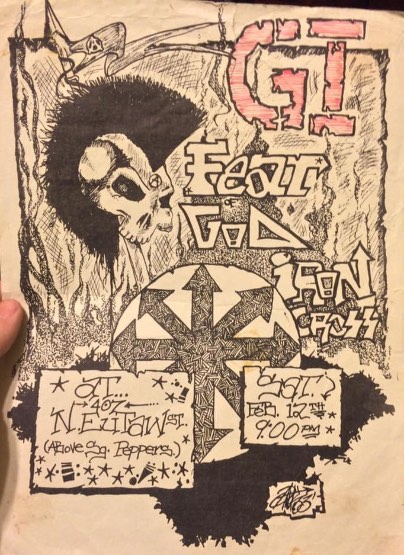 GI
Fear
OF
GOD
IRON
CROSS
AT...
407
N. EUTAW ST.
(Above Sg. Peppers)
SAT.
Feb. 12TH
9:00 PM